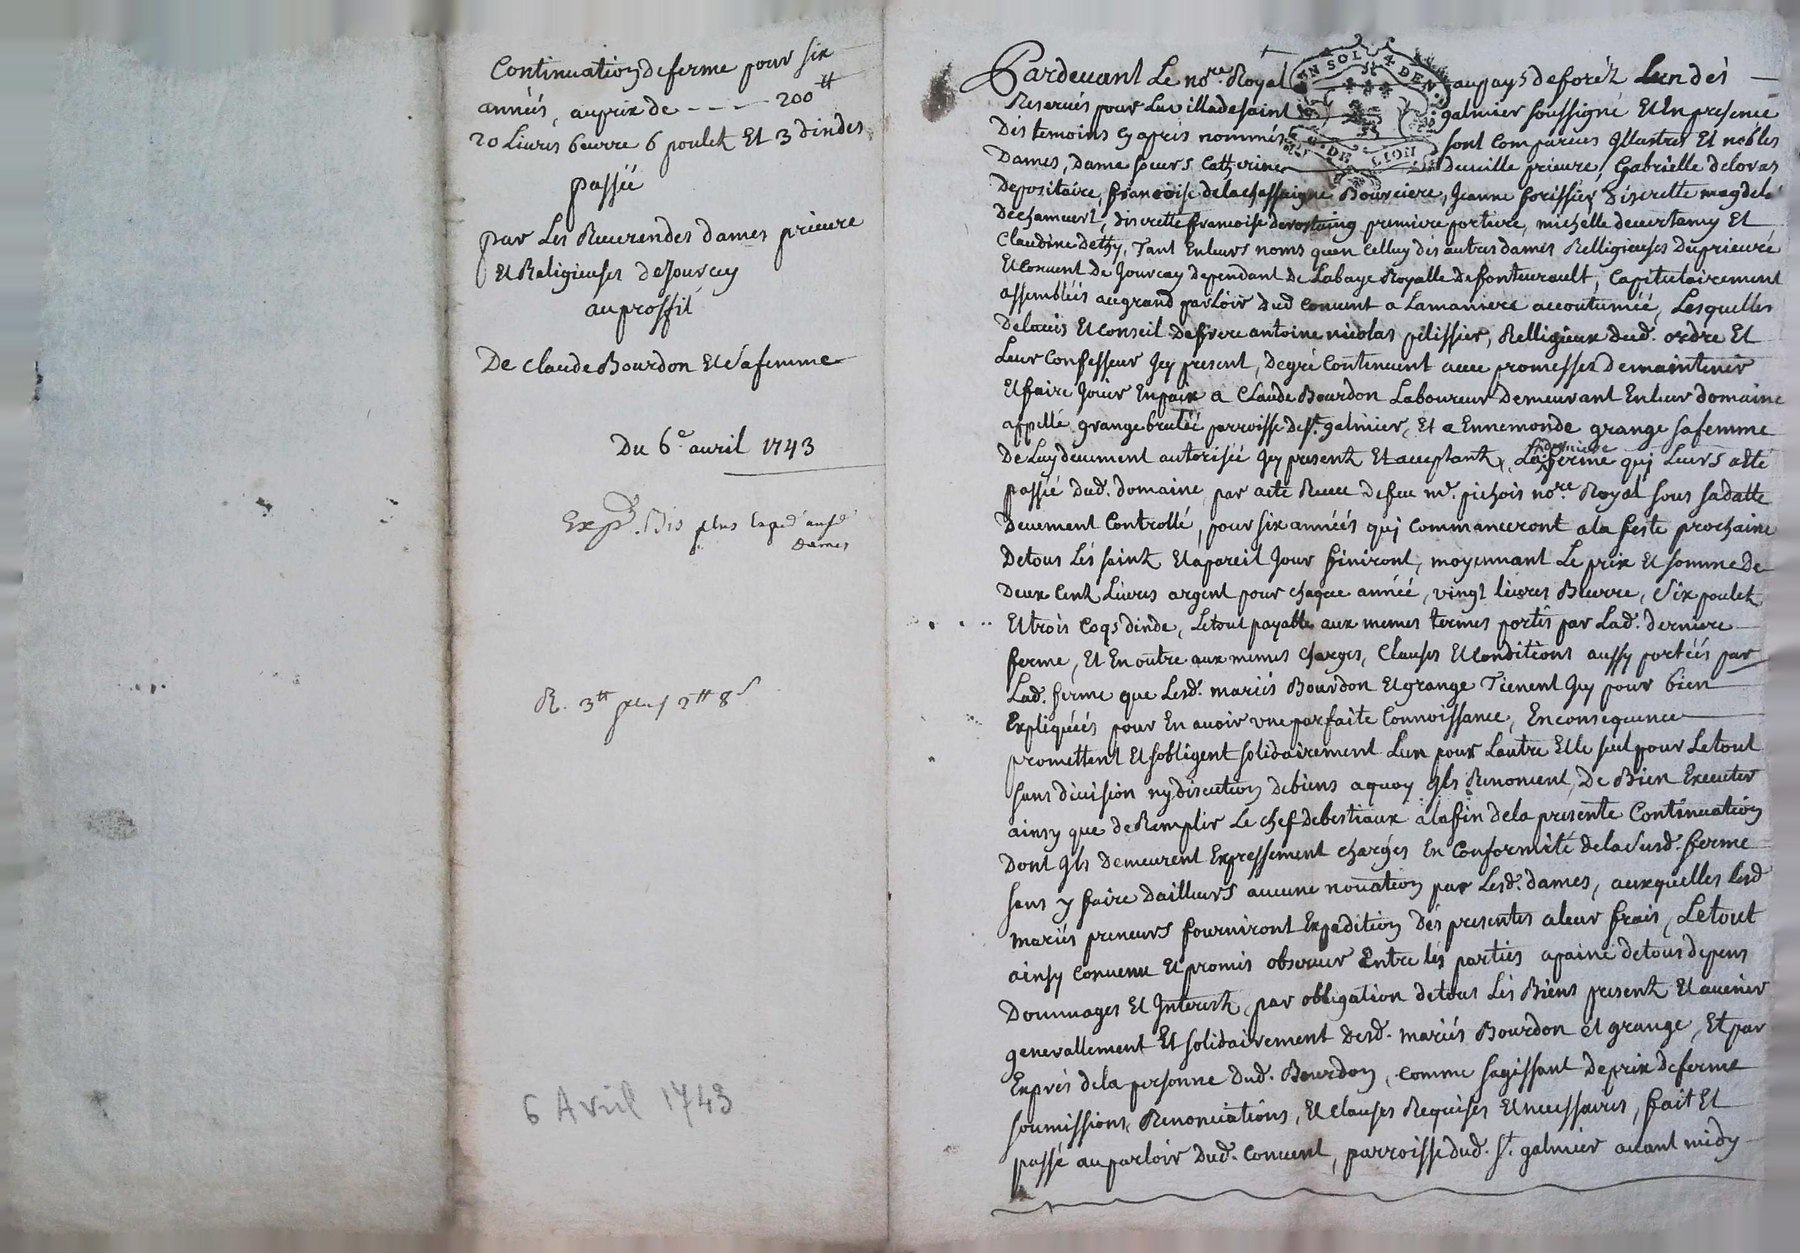 Continuation de ferme pour six
années, au prix de - - - - 200tt
20 Livres beurre 6 poulets Et 3 dindes
passée
par Les Reuerendes dames prieure
Et Religieuses de Jourcey
au proffit
De claude Bourdon Et Sa femme
Du 6e auril 1743
Expd. Bis plus
dames
R. 3tt plus 2tt 8s
6 Avril 1743
UN SOL 4 DEN.
G. DE LION
Pardeuant Le nore Royal au pays de foréz Lun dés
Reserués pour La ville de saint galmier soussigné Et En presence
Dés temoins cy aprés nommés sont Comparües Illustres Et nobles
Dames, Dame sœurs Catherine deville prieure, Gabrielle de loras
Depositaire, francoise de la chassaigne Boursiere, Jeanne forissier Discrette magdelê
Dechamuert, discrette francoise derostaing premiere portiere, michelle deuertamy Et
Claudine dethy, Tant En leurs noms qu'en Celluy des autres dames Relligieuses Du prieuré
Et Conuent De Jourcey dependant De Labaye Royalle De fonteurault, Capitulairement
assemblées au grand parloir dud Conuent a La maniere accoutumée, Lesquelles
De lauis Et Conseil De frere antoine nicolas pelissier, Relligieux dud. ordre Et
Leur Confesseur Icy present, De gré Continuent auec promesses De maintenir
Et faire Jouir En paix a Claude Bourdon Laboureur Demeurant En leur domaine
appellé grange brulée parroisse de st. galmier, Et a Ennemonde grange sa femme
De Luy deuement autorisée Icy presents Et acceptants, La derniere ferme qui Leurs a été
passée dud. domaine par acte Receu de feu me. pichois nore. Royal sous sa datte
Deuement Controllé, pour six années qui Commanceront a la feste prochaine
De tous Lés saints Et a pareil Jour finiront, moyennant Le prix Et somme de
Deux Cents Liures argent pour chaque année, vingt liures Beurre, Six poulets
Et trois Coqs dinde, Le tout payable aux memes termes portés par Lad. derniere
ferme, Et En outre aux memes charges, Clauses Et Conditions aussy portées par
Lad. ferme que Lesd. mariés Bourdon Et grange Tienent Icy pour bien
Expliquées pour En auoir vne parfaite Connoissance, En consequence
promettent Et s'obligent solidairement Lun pour Lautre Et le seul pour Le tout
sans diuision ny discution de biens a quoy Ils Renoncent, De Bien Executer
ainsy que de Remplir Le chef de bestiaux a la fin de la presente Continuation
Dont Ils Demeurent Expressement chargés En Conformité de la Susd. ferme
sans y faire dailleurs aucune nouation par Lesd. dames, auxquelles Lesd
mariés preneurs fourniront Expedition Dés presentes a leur frais, Le tout
ainsy conuenu Et promis obseruer Entre lés parties a paine de tous depens
Dommages Et Interests, par obligation de tous Lés Biens presents Et auenir
generallement Et solidairement Desd. mariés Bourdon et grange, Et par
Exprés de la personne Dud. Bourdon, comme s'agissant De prix de ferme
soumissions, Renonciations, Et Clauses Requises Et necessaires, fait Et
passé au parloir Dud. Conuent, parroisse dud. st. galmier auant midy